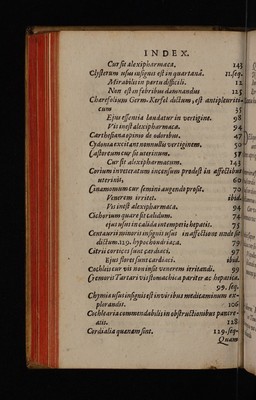 INDEX.
Cur sit alexipharmaca. 143
Clysterum usus insignis est in quartanâ. 11. seq.
Mirabilis in partu difficili. 12
Non est in febribus damnandus 123
Charefolium Germ. Kerfel dictum, est antipleuriti-
cum 55
Ejus essentia laudatur in vertigine. 98
Vis inest alexipharmaca. 94
Carthesiana opinio de odoribus. 47
Cydonia excitant nonnullis vertiginem. 50
Castoreum cur sit uterinum. 51
Cur sit alexipharmacum. 143
Corium inveteratum incensum prodest in affectibus
uterinis, 60
Cinamomum cur semini augendo prosit. 70
Venerem irritet. ibid.
Vis inest alexipharmaca. 94
Cichorium quare sit calidum. 74
ejus usus in calida intemperie hepatis. 75
Centaurii minoris insignis usus in affectione
dictum. 129. hypochondriaca. 79
Citrii cortices sunt cardiaci. 97
Ejus flores sunt cardiaci. ibid.
Cochleis cur vis non insit venerem irritandi. 99
Cremoris Tartari vis stomachica pariter ac hepatica.
99. seq.
Chymia usus insignis est in viribus medicaminum ex-
plorandis. 106
Cochlearia commendabilis in obstructionibus pancre-
atis. 128
Cordialia quænam sint. 119. seq.
Quam